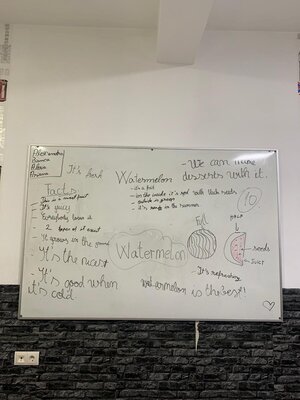 Bianca
It's fresh
Watermelon
- We can make
desserts with it.
- it's a fruit
- on the inside it's red with black seeds
- outside is green
- it's ready in the summer
10
Facts
- This is a sweet fruit
- It's juicy
- Everybody loves it
- 2 types of it exist
- It grows in the ground
- It's the nicest
- It's good when
it's cold
Watermelon
Full
pulp
seeds
juicy
- It's refreshing
watermelon is the best!